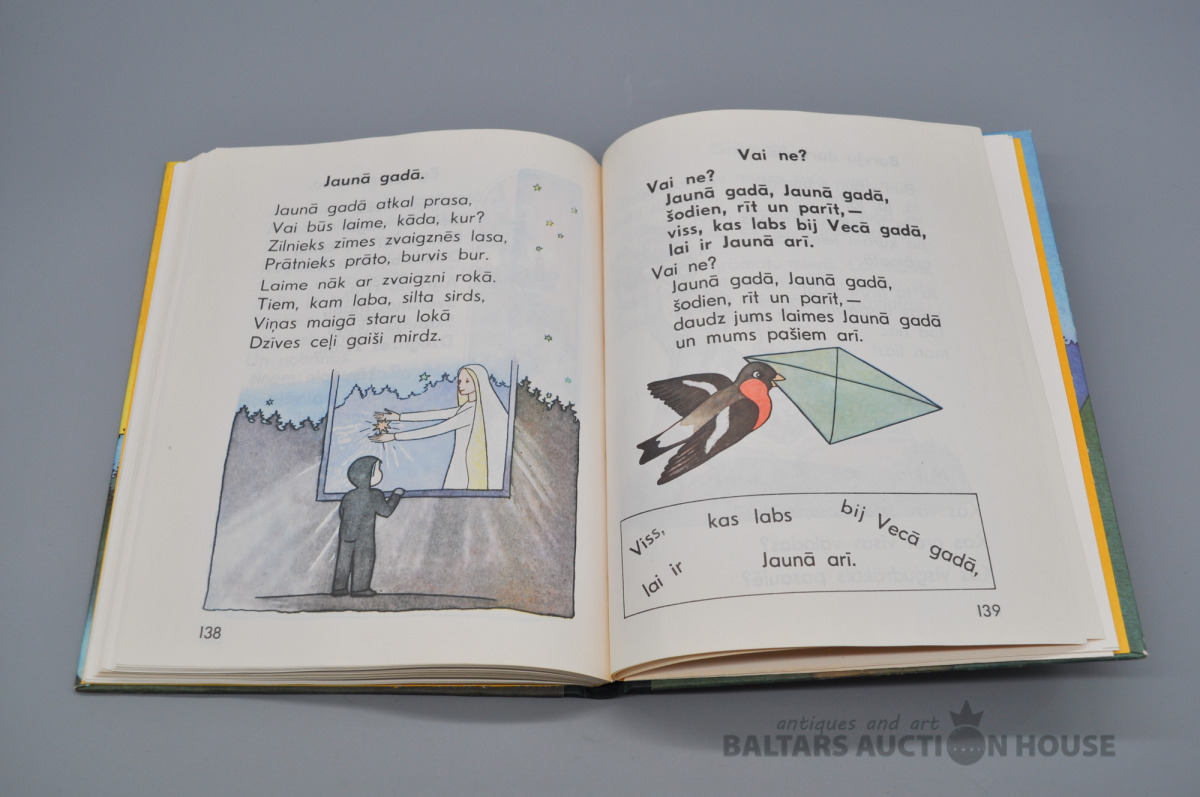 Jaunā gadā.
Jaunā gadā atkal prasa,
Vai būs laime, kāda, kur?
Zilnieks zīmes zvaigznēs lasa,
Prātnieks prāto, burvis bur.
Laime nāk ar zvaigzni rokā.
Tiem, kam laba, silta sirds,
Viņas maigā staru lokā
Dzīves ceļi gaiši mirdz.
138
Vai ne?
Vai ne?
Jaunā gadā, Jaunā gadā,
šodien, rīt un parīt,—
viss, kas labs bij Vecā gadā,
lai ir Jaunā arī.
Vai ne?
Jaunā gadā, Jaunā gadā,
šodien, rīt un parīt,—
daudz jums laimes Jaunā gadā
un mums pašiem arī.
Viss, kas labs bij Vecā gadā,
lai ir Jaunā arī.
139
antiques and art
BALTARS AUCTION HOUSE